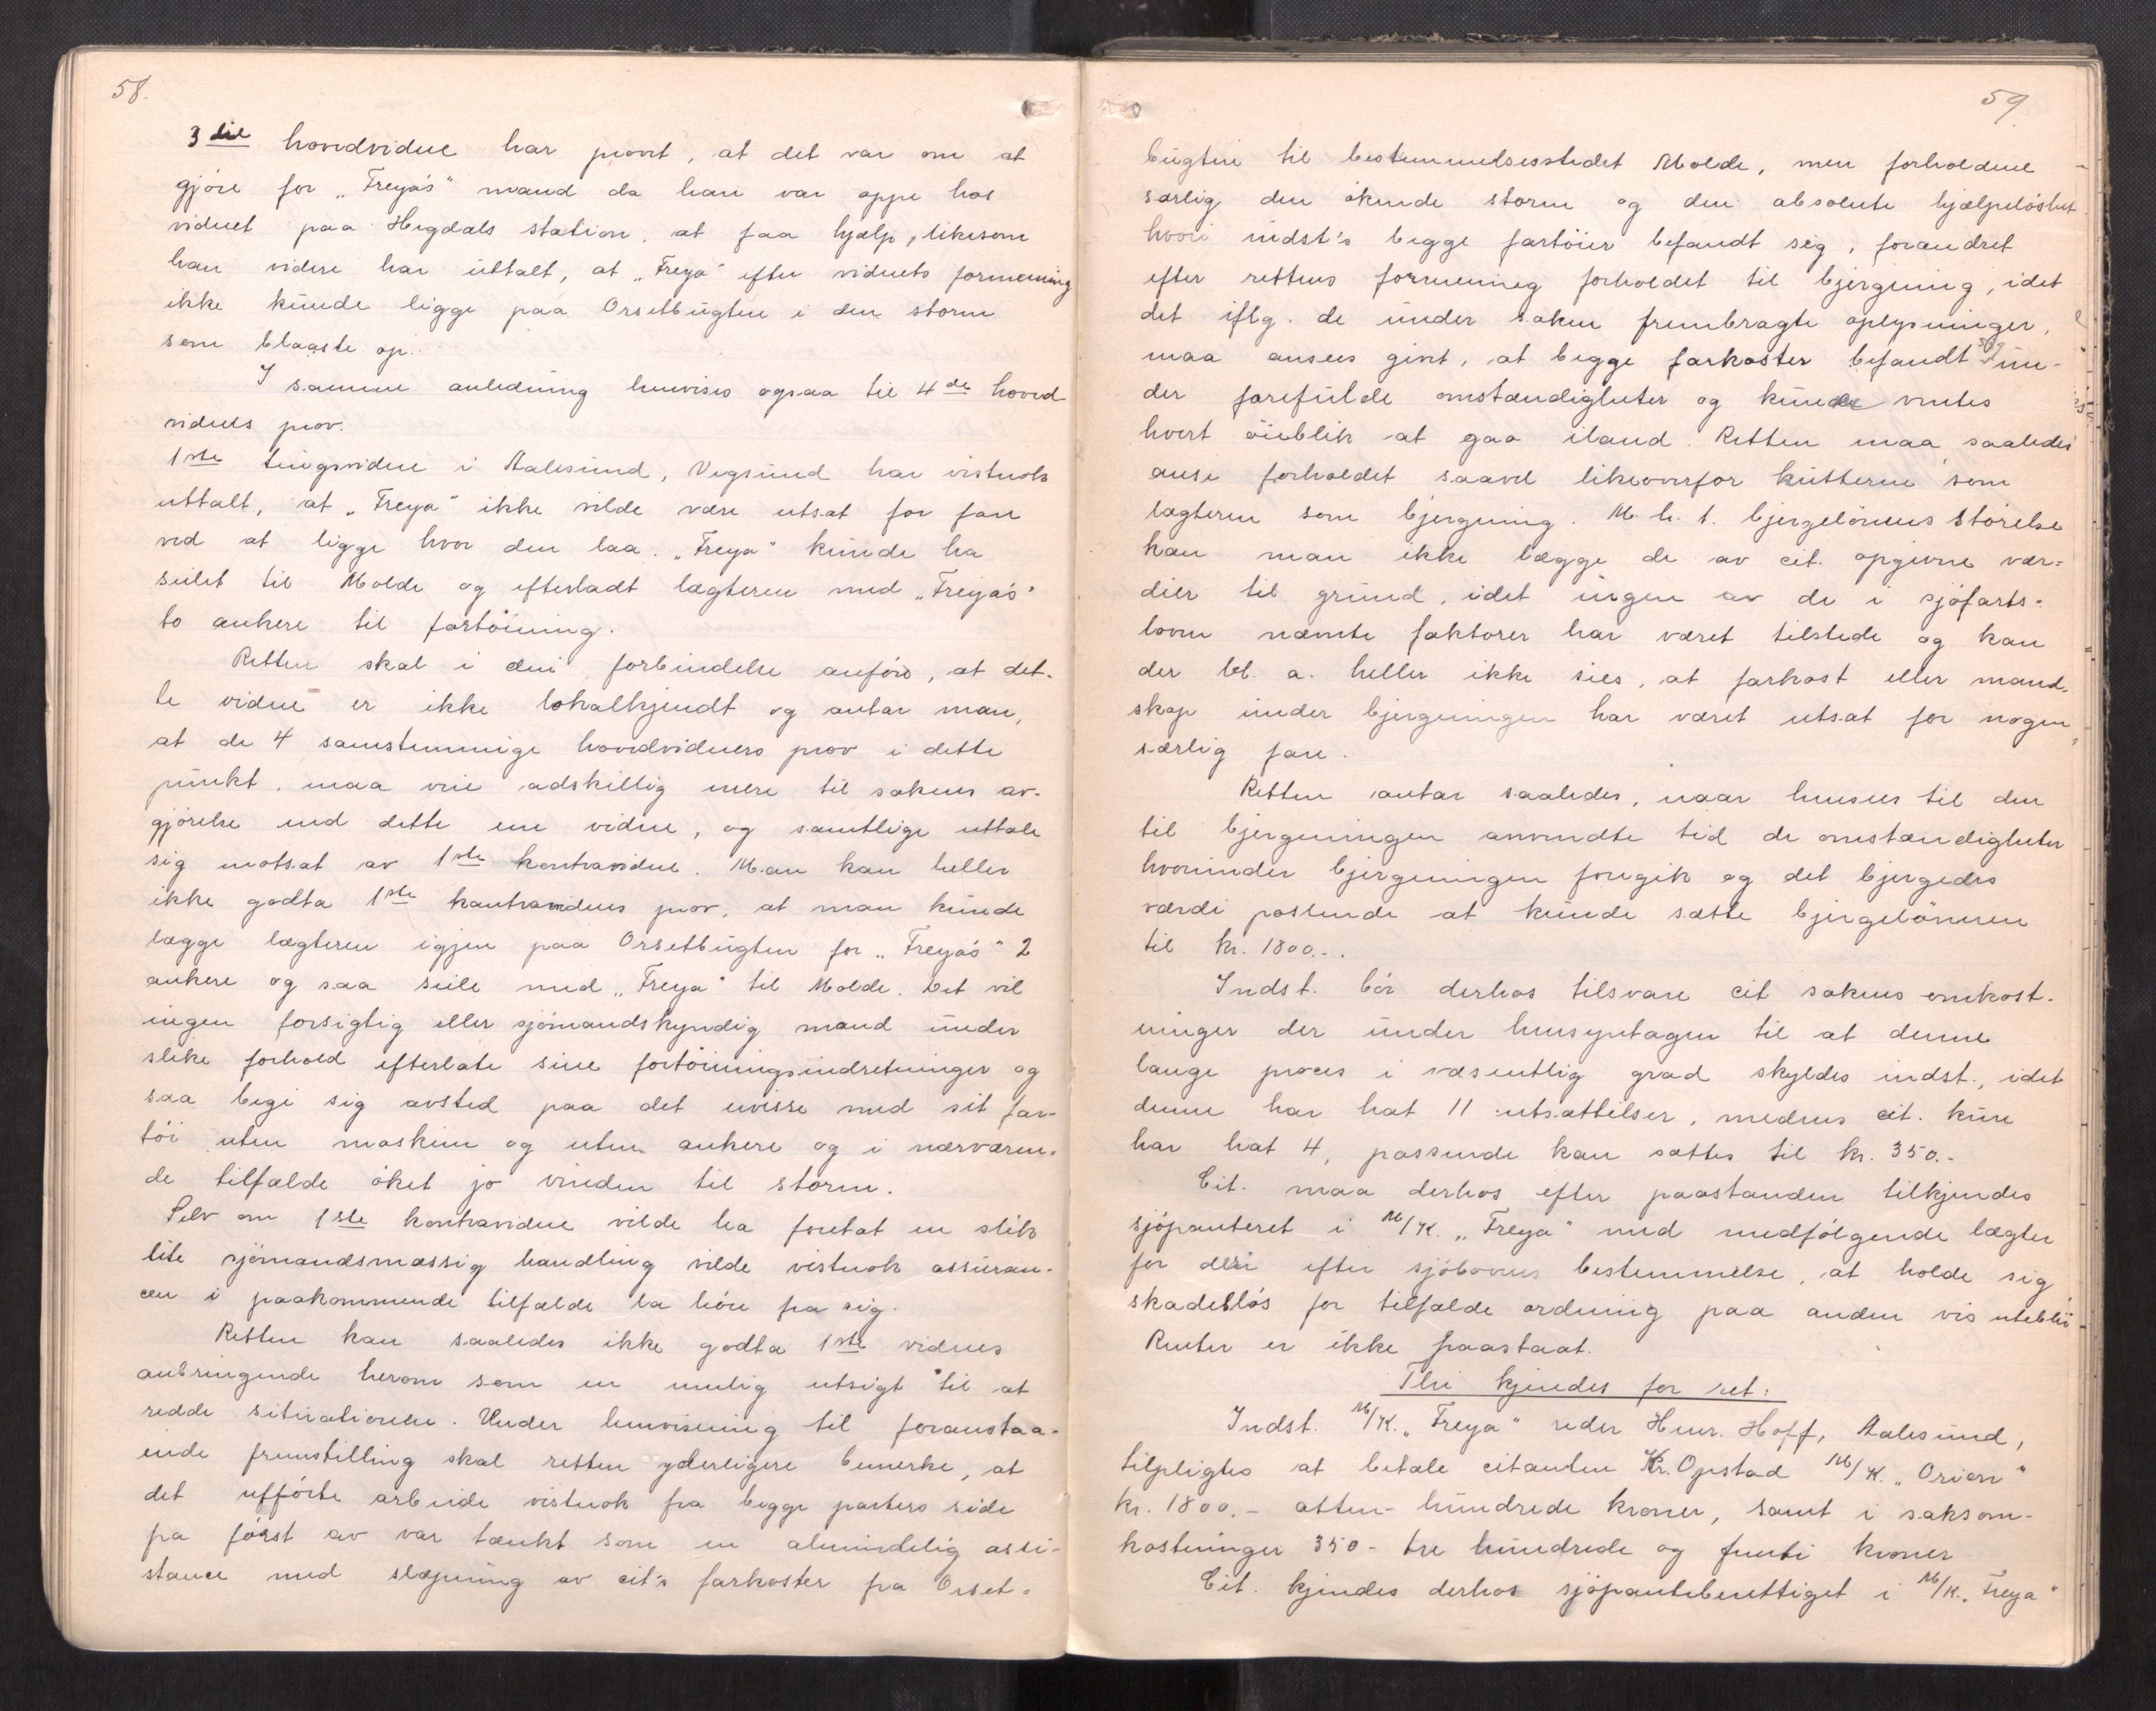 58.
3die hovedvidne har provet, at det var om at
gjöre for „Freya's" mand da han var oppe hos
vidnet paa Hegdals station, at faa hjælp, likesom
han videre har uttalt, at „Freya" efter vidnets formening
ikke kunde ligge paa Orsetbugten i den storm
som blaaste op.
I samme anledning henvises ogsaa til 4de hoved-
vidnes prov.
1ste tingsvidne i Aalesund, Vegsund har vistnok
uttalt, at „Freya" ikke vilde være utsat for fare
ved at ligge hvor den laa. „Freya" kunde ha
seilet til Molde og efterladt lægteren med „Freya's"
to ankere til fortöining.
Retten skal i den forbindelse anföre, at det-
te vidne er ikke lokalkjendt og antar man,
at de 4 samstemmige hovedvidners prov i dette
punkt, maa veie adskillig mere til sakens av-
gjörelse end dette ene vidne, og samtlige uttale
sig motsat av 1ste kontravidne. Man kan heller
ikke godta 1ste kontravidnes prov, at man kunde
lægge lægteren igjen paa Orsetbugten for „Freya's" 2
ankere og saa seile med „Freya" til Molde. Det vil
ingen forsigtig eller sjömandskyndig mand under
slike forhold efterlate sine fortöiningsindretninger og
saa begi sig avsted paa det uvisse med sit far-
töi uten maskin og uten ankere og i nærværen-
de tilfælde öket jo vinden til storm.
Selv om 1ste kontravidne vilde ha foretat en slik
lite sjömandsmæssig handling vilde vistnok assuran-
cen i paakommende tilfælde la höre fra sig.
Retten kan saaledes ikke godta 1ste vidnes
anbringende herom som en mulig utsigt til at
redde situationen. Under henvisning til foranstaa-
ende fremstilling skal retten yderligere bemerke, at
det uffört arbeide vistnok fra begge parters side
fra först av var tænkt som en almindelig assi-
stance med slæpning av cit's farkoster fra Orset-
59
bugten til bestemmelsesstedet Molde, men forholdene
særlig den ökende storm og den absolute hjælpelöshet
hvori indst's begge fartöier befandt seg, forandret
efter rettens formening forholdet til bjergning, idet
det iflg. de under saken frembragte oplysninger,
maa ansees givet, at begge farkoster befandt sig un-
der farefulde omstændigheter og kunde ventes
hvert öieblik at gaa iland. Retten maa saaledes
anse forholdet saavel likeoverfor kutteren som
lægteren som bjergning. M.h.t. bjergelönnens störelse
kan man ikke lægge de av cit. opgivne vær-
dier til grund, idet ingen av de i sjöfarts-
loven nævnte faktorer har været tilstede og kan
der bl. a. heller ikke sies, at farkost eller mand-
skap under bjergningen har været utsat for nogen
særlig fare.
Retten antar saaledes, naar henses til den
til bjergningen anvendte tid de omstændigheter
hvorunder bjergningen foregik og det bjergedes
værdi passende at kunde sætte bjergelönnen
til kr. 1800.-.
Indst. bör derhos tilsvare cit sakens omkost-
ninger der under hensyntagen til at denne
lange proces i væsentlig grad skyldes indst., idet
denne har hat 11 utsættelser, medens cit. kun
har hat 4, passende kan sættes til kr. 350.-
Cit. maa derhos efter paastanden tilkjendes
sjöpanteret i M/K. „Freya" med medfölgende lægter
for deri efter sjölovens bestemmelse, at holde sig
skadeslös for tilfælde ordning paa anden vis utebli
Renter er ikke paastaat.
Thi kjendes for ret:
Indst. M/K. „Freya" reder Henr. Hoff, Aalesund,
tilpligtes at betale citanten Kr. Opstad M/K. „Orion"
kr. 1800.- atten-hundrede kroner, samt i saksom-
kostninger 350- tre hundrede og femti kroner
Cit. kjendes derhos sjöpanteberettiget i M/K. „Freya"